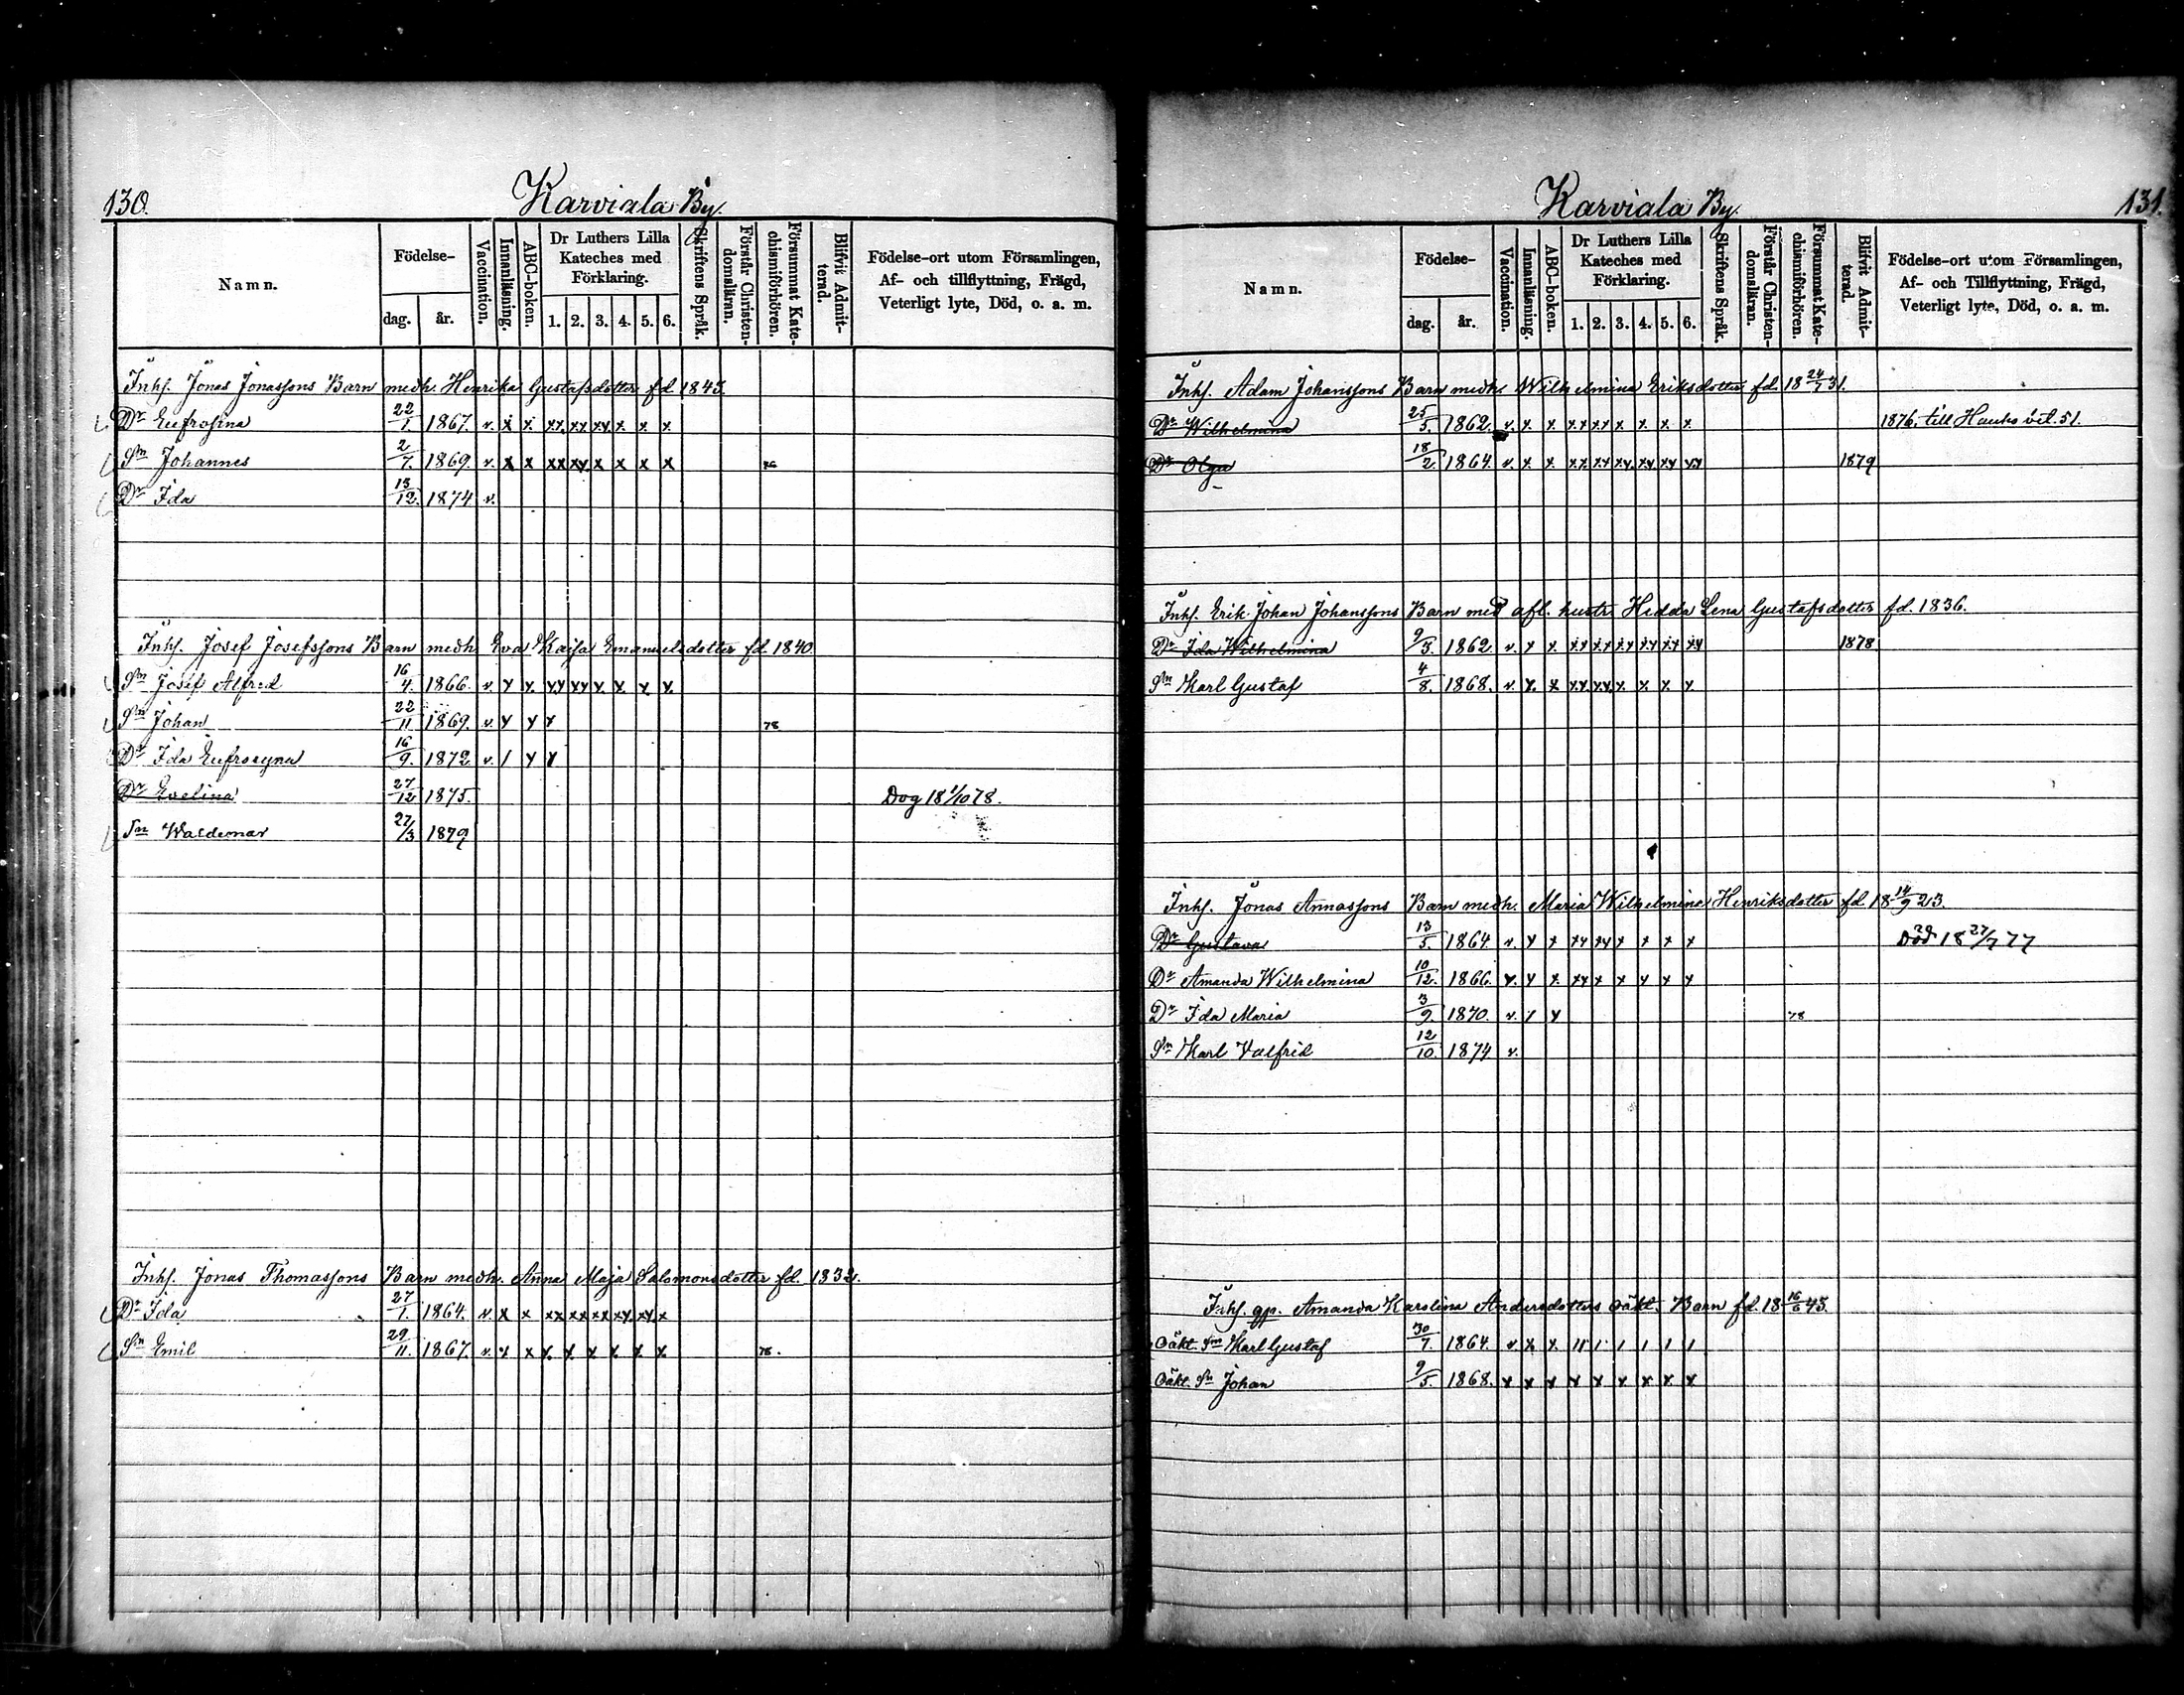 130.
Karviala By.
Namn.
Födelse-
dag.
år.
Vaccination.
Innanläsning.
ABC-boken.
Dr Luthers Lilla
Kateches med
Förklaring.
1. 2. 3. 4. 5. 6.
Skriftens Språk.
Förstår Christen-
domsläran.
Försummat Kate-
chismiförhören.
Blifvit Admit-
terad.
Födelse-ort utom Församlingen,
Af- och tillflyttning, Frägd,
Veterligt lyte, Död, o. a. m.
Inhs. Jonas Jonassons Barn medh. Henrika Gustafsdotter fd 1843.
Dr Eufrosina 22/1. 1867. v. x x. xx. xx xx x. x. x
Sn Johannes 2/7. 1869. v. x x xx xx x x x x
Dr Ida 13/12. 1874 v.
Inhs. Josef Josefssons Barn medh Eva Kaisa Emanuelsdotter fd. 1840
Sn Josef Alfred 16/4. 1866. v. x x. xx xx x. x. x x.
Sn Johan 22/11. 1869. v. x x x 78
Dr Ida Eufrosyna 16/9. 1872 v. / x x
Dr Evelina 27/12 1875. Dog 18 1/10 78.
Sn Waldemar 27/3 1879
Inhs. Jonas Thomassons Barn medh. Anna Maja Salomonsdotter fd. 1832.
Dr Ida 27/1. 1864. v. x x xx xx xx xx. xx. x
Sn Emil 29/11. 1867. v. x x x. x. x x. x. x. 78.
Karviala By.
131.
Namn.
Födelse-
dag.
år.
Vaccination.
Innanläsning.
ABC-boken.
Dr Luthers Lilla
Kateches med
Förklaring.
1. 2. 3. 4. 5. 6.
Skriftens Språk.
Förstår Christen-
domsläran.
Försummat Kate-
chismiförhören.
Blifvit Admit-
terad.
Födelse-ort utom Församlingen,
Af- och Tillflyttning, Frägd,
Veterligt lyte, Död, o. a. m.
Inhs. Adam Johanssons Barn medh. Wilhelmina Eriksdotter fd. 18 24/7 31.
Dr Wilhelmina 25/5. 1862. v. x x xx xx x x. x. x 1876. till
Dr Olga 18/2. 1864. v. x. x. xx. xx xx. xx xx xx 1879
Inhs. Erik Johan Johanssons Barn med afl. hustr. Hedda Lena Gustafsdotter fd. 1836.
Dr Ida Wilhelmina 9/5. 1862 v. x x xx xx xx xx xx xx 1878
Sn Karl Gustaf 4/8. 1868. v. x. x xx. xx. x. x. x. x.
Inhs. Jonas Annassons Barn medh. Maria Wilhelmina Henriksdotter fd. 18 14/9 23.
Dr Gustava 13/5. 1864. v. x x xx xx x x x x Död 18 27/7 77
Dr Amanda Wilhelmina 10/12. 1866. v. x x. xx x x x x x
Dr Ida Maria 3/9 1870. v. / x 78
Sn Karl Valfrid 12/10. 1874 v.
Inhs. qp. Amanda Karolina Andersdotters oäkt. Barn fd. 18 16/6 43.
Oäkt. Sn Karl Gustaf 30/7. 1864. v x x. 11 1 1 1 1 1
Oäkt. Sn Johan 9/5. 1868. x x x x x x x x x